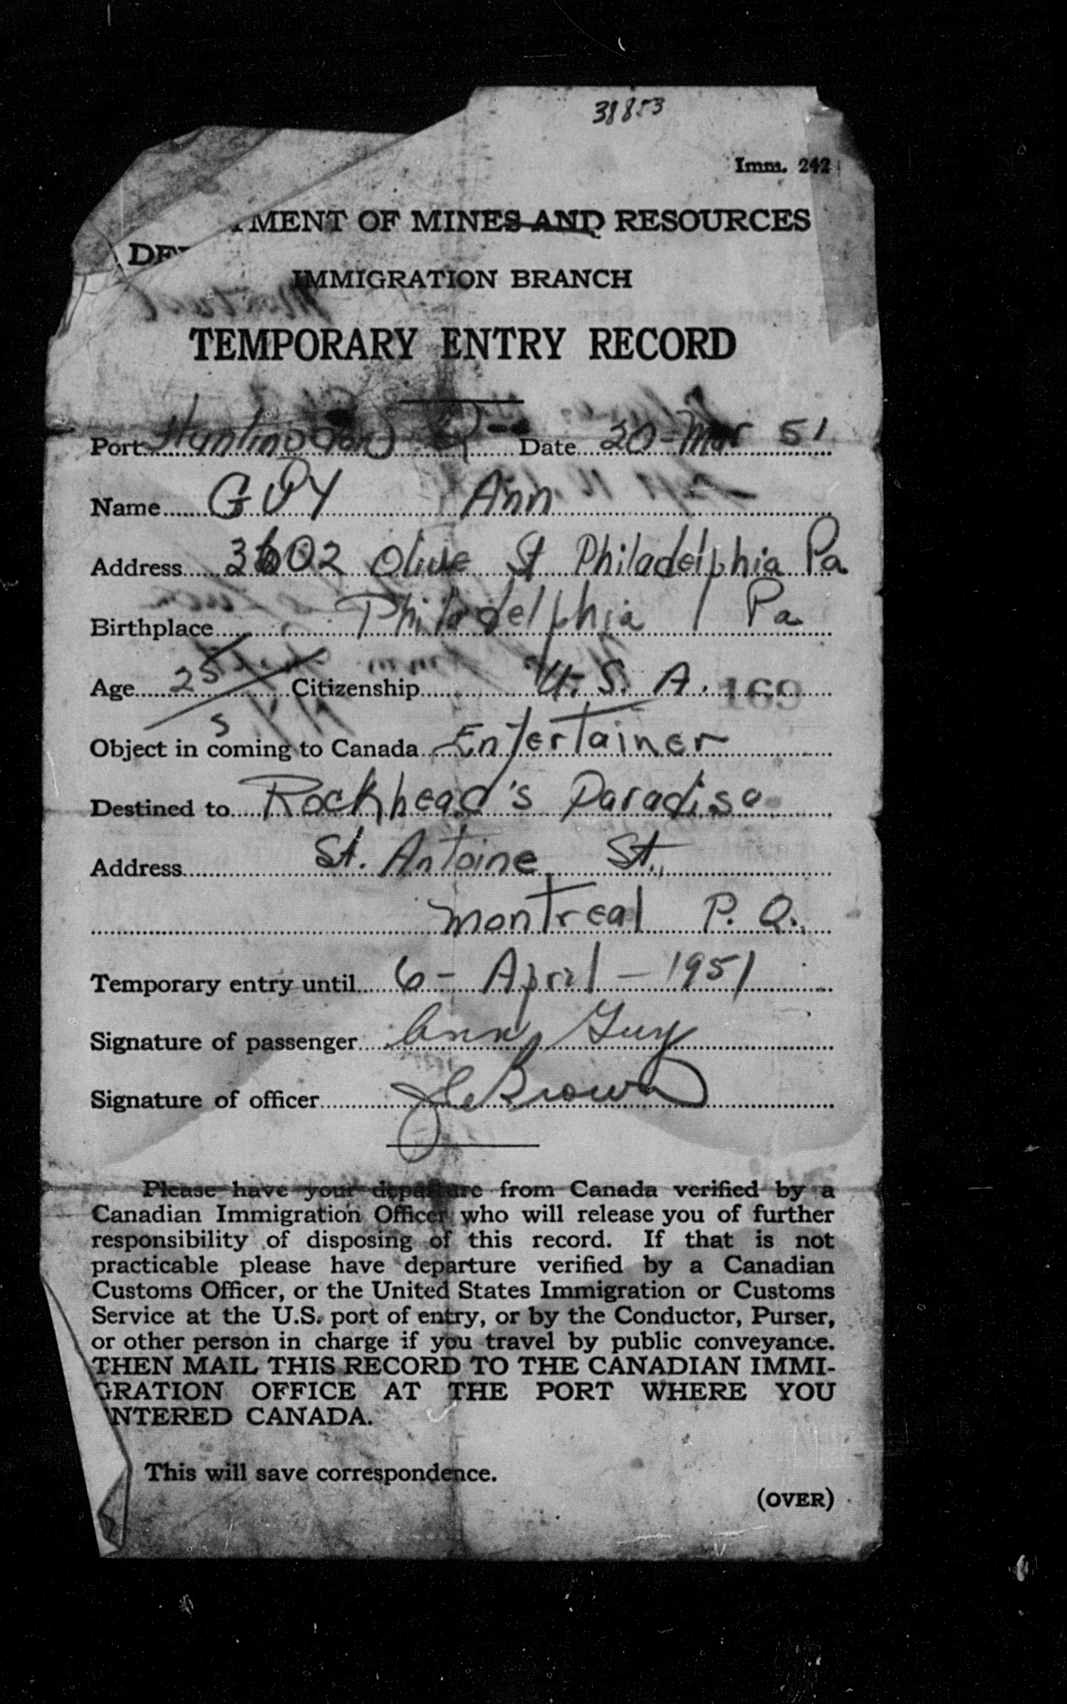 38853
Imm. 242
DE MENT OF MINES AND RESOURCES
IMMIGRATION BRANCH
TEMPORARY ENTRY RECORD
Port Huntingdon Q Date 20-Mar 51
Name GUY Ann
Address 3602 Olive St Philadelphia Pa
Birthplace Philadelphia / Pa
Age 25 Citizenship U.S.A. 169
S
Object in coming to Canada Entertainer
Destined to Rockhead's Paradise
Address St. Antoine St.,
Montreal P. Q.,
Temporary entry until 6 - April - 1951
Signature of passenger Ann Guy
Signature of officer Brown
Please have your departure from Canada verified by a
Canadian Immigration Officer who will release you of further
responsibility of disposing of this record. If that is not
practicable please have departure verified by a Canadian
Customs Officer, or the United States Immigration or Customs
Service at the U.S. port of entry, or by the Conductor, Purser,
or other person in charge if you travel by public conveyance.
THEN MAIL THIS RECORD TO THE CANADIAN IMMI-
GRATION OFFICE AT THE PORT WHERE YOU
NTERED CANADA.
This will save correspondence.
(OVER)